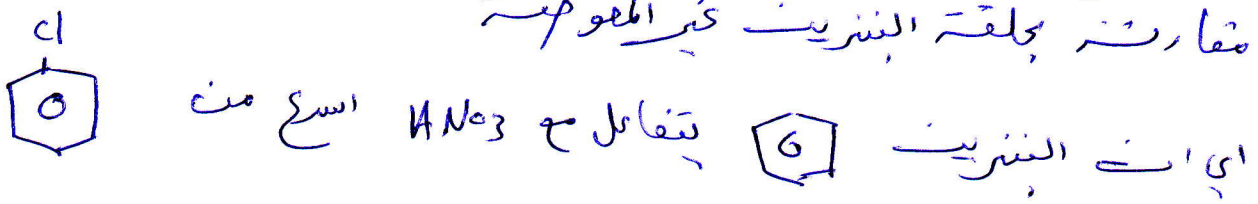 مقارنة بحلقة البنزين غير المعوضة
Cl
اي ان البنزين يتفاعل مع HNO3 اسرع من